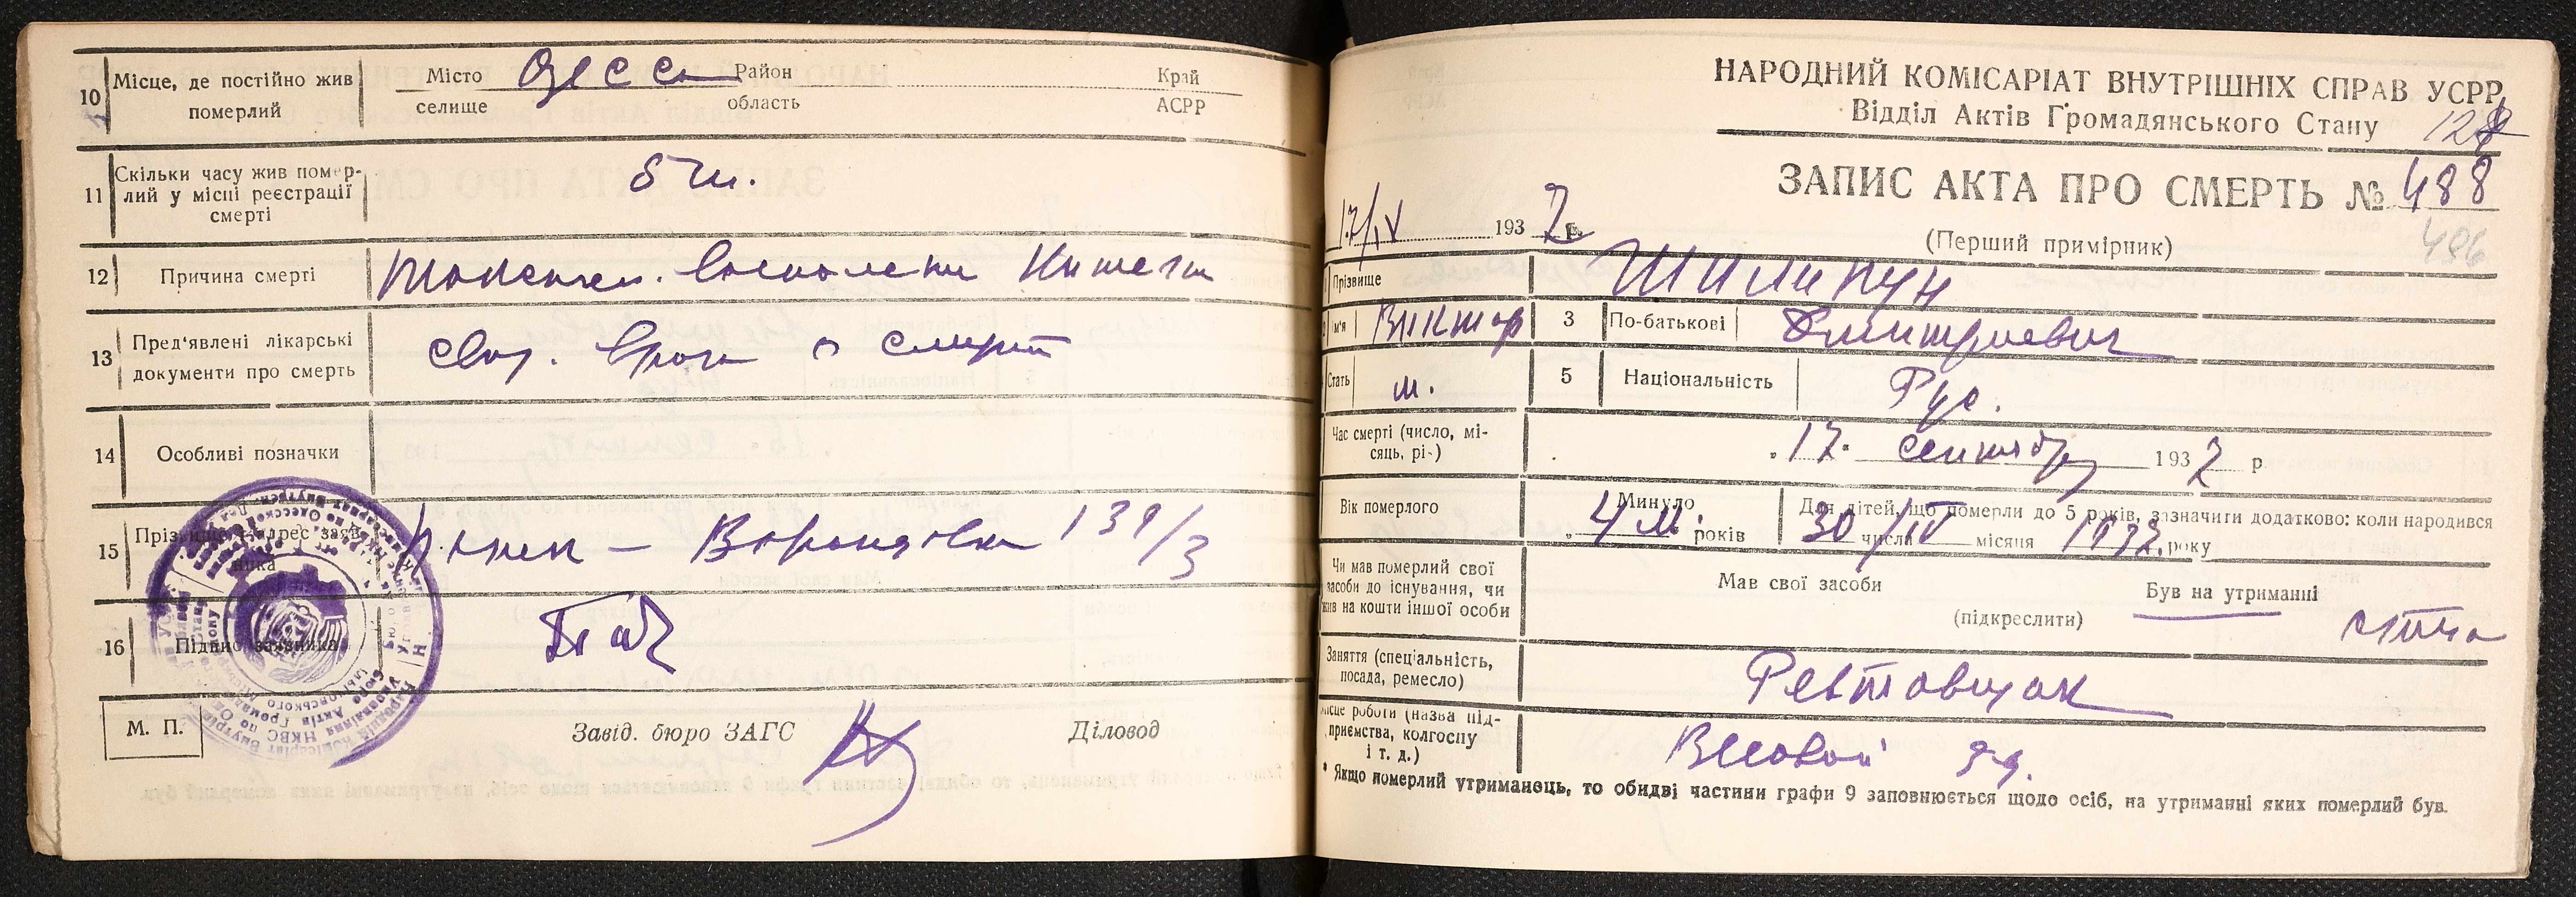 10 Місце, де постійно жив померлий
Місто Одесса Район Край
селище область АСРР
11 Скільки часу жив помер-
лий у місці реєстрації
смерті
5 м.
12 Причина смерті
Токсическ. воспаление Кишечн
13 Пред'явлені лікарські
документи про смерть
спр. врача о смерти
14 Особливі позначки
15 Прізвище і адрес заяв-
ника
139/3
16 Підпис заявника
М. П.
Завід. бюро ЗАГС
Діловод
НАРОДНИЙ КОМІСАРІАТ ВНУТРІШНІХ СПРАВ УСРР
Відділ Актів Громадянського Стану
ЗАПИС АКТА ПРО СМЕРТЬ № 488
486
17/IX 1937 р.
(Перший примірник)
Прізвище
Шилипун
ім'я Виктор 3 По-батькові Дмитриевич
Стать м. 5 Національність Рус.
Час смерті (число, мі-
сяць, рі-)
17. сентябр 1937 р
Вік померлого
Минуло
4 м. років
Для дітей, що померли до 5 років, зазначити додатково: коли народився
30 числа IV місяця 1937 року
Чи мав померлий свої
засоби до існування, чи
жив на кошти іншої особи
Мав свої засоби Був на утриманні
(підкреслити)
отца
Заняття (спеціальність,
посада, ремесло)
Реставщик
Місце роботи (назва під-
приємства, колгоспу
і т. д.)
Весовой з-д.
* Якщо померлий утриманець, то обидві частини графи 9 заповнюється щодо осіб, на утриманні яких померлий був.